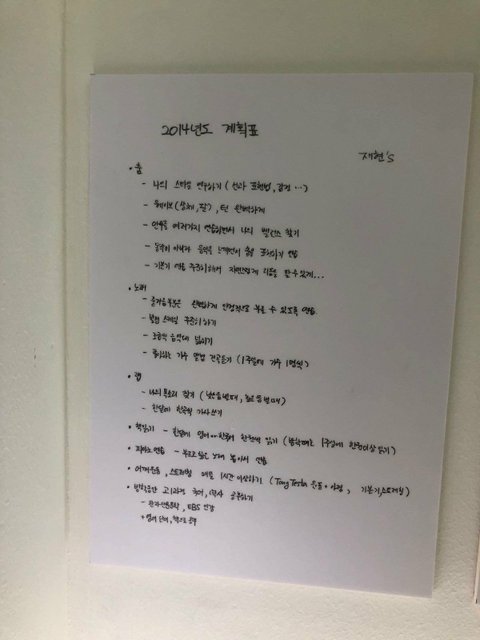 2014년도 계획표
재현's
• 춤
- 나의 스타일 연구하기 (선과 표현법, 감정 ...)
- 웨이브 (상체, 팔), 턴 완벽하게
- 안무를 여러가지 연습하면서 나의 밸런스 찾기
- 동작의 이해와 음악을 느끼면서 춤을 표현하기 연습
- 기본기 연습 꾸준히하여 자연스럽게 리듬을 탈 수 있게...
• 노래
- 즐거움 부분은 완벽하게 안정적으로 부를 수 있도록 연습
- 발성 스케일 꾸준히 하기
- 조금씩 음역대 넓히기
- 좋아하는 가수 앨범 전곡듣기 (1주일에 가수 1명씩)
• 랩
- 나의 목소리 찾기 (낮은음 랩 때, 높은음 랩 때)
- 한달에 한곡씩 가사쓰기
• 책읽기 - 한달에 한권씩 읽기 (방학때는 1주일에 한권이상 읽기)
• 피아노연습 - 부르고 싶은 노래 놓아서 연습
• 어깨운동, 스트레칭 매일 1시간 이상하기 (Tony Testa 운동 + 아령, 기본기,스트레칭)
• 방학동안 고1과정 국어, 역사 공부하기
- EBS 인강
+ 영어 단어, 책으로 공부